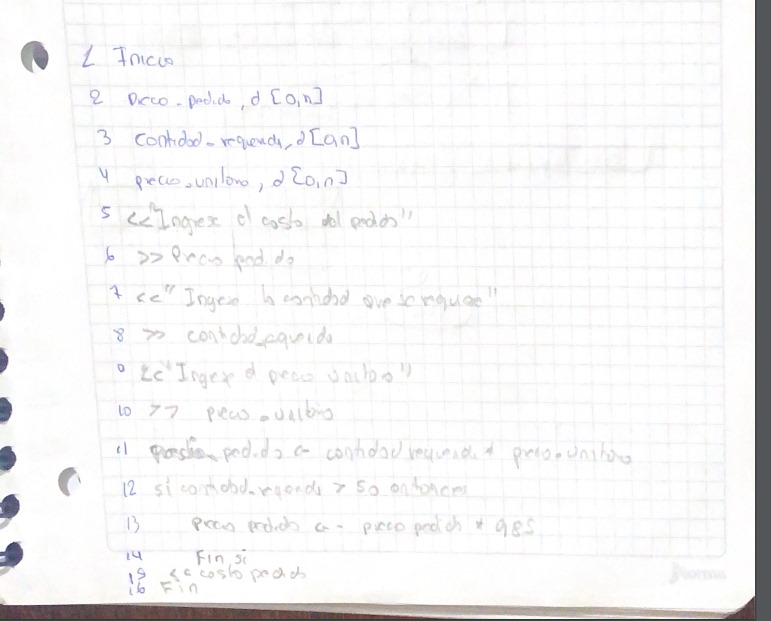 1 Inicio
2 precio_pedido, d [0,n]
3 cantidad_requerida, d [0,n]
4 precio_unitario, d [0,n]
5 <<"Ingrese el costo del pedido"
6 >> Precio pedido
7 <<" Ingrese la cantidad que se requiere"
8 >> cantidad_requerida
9 <<"Ingrese el precio unitario"
10 >> precio_unitario
11 pedido <- cantidad requerida * precio_unitario
12 si cantidad_requerida > 50 entonces
13 precio pedido <- precio pedido * 985
14 Fin si
15 << costo pedido
16 Fin
norma